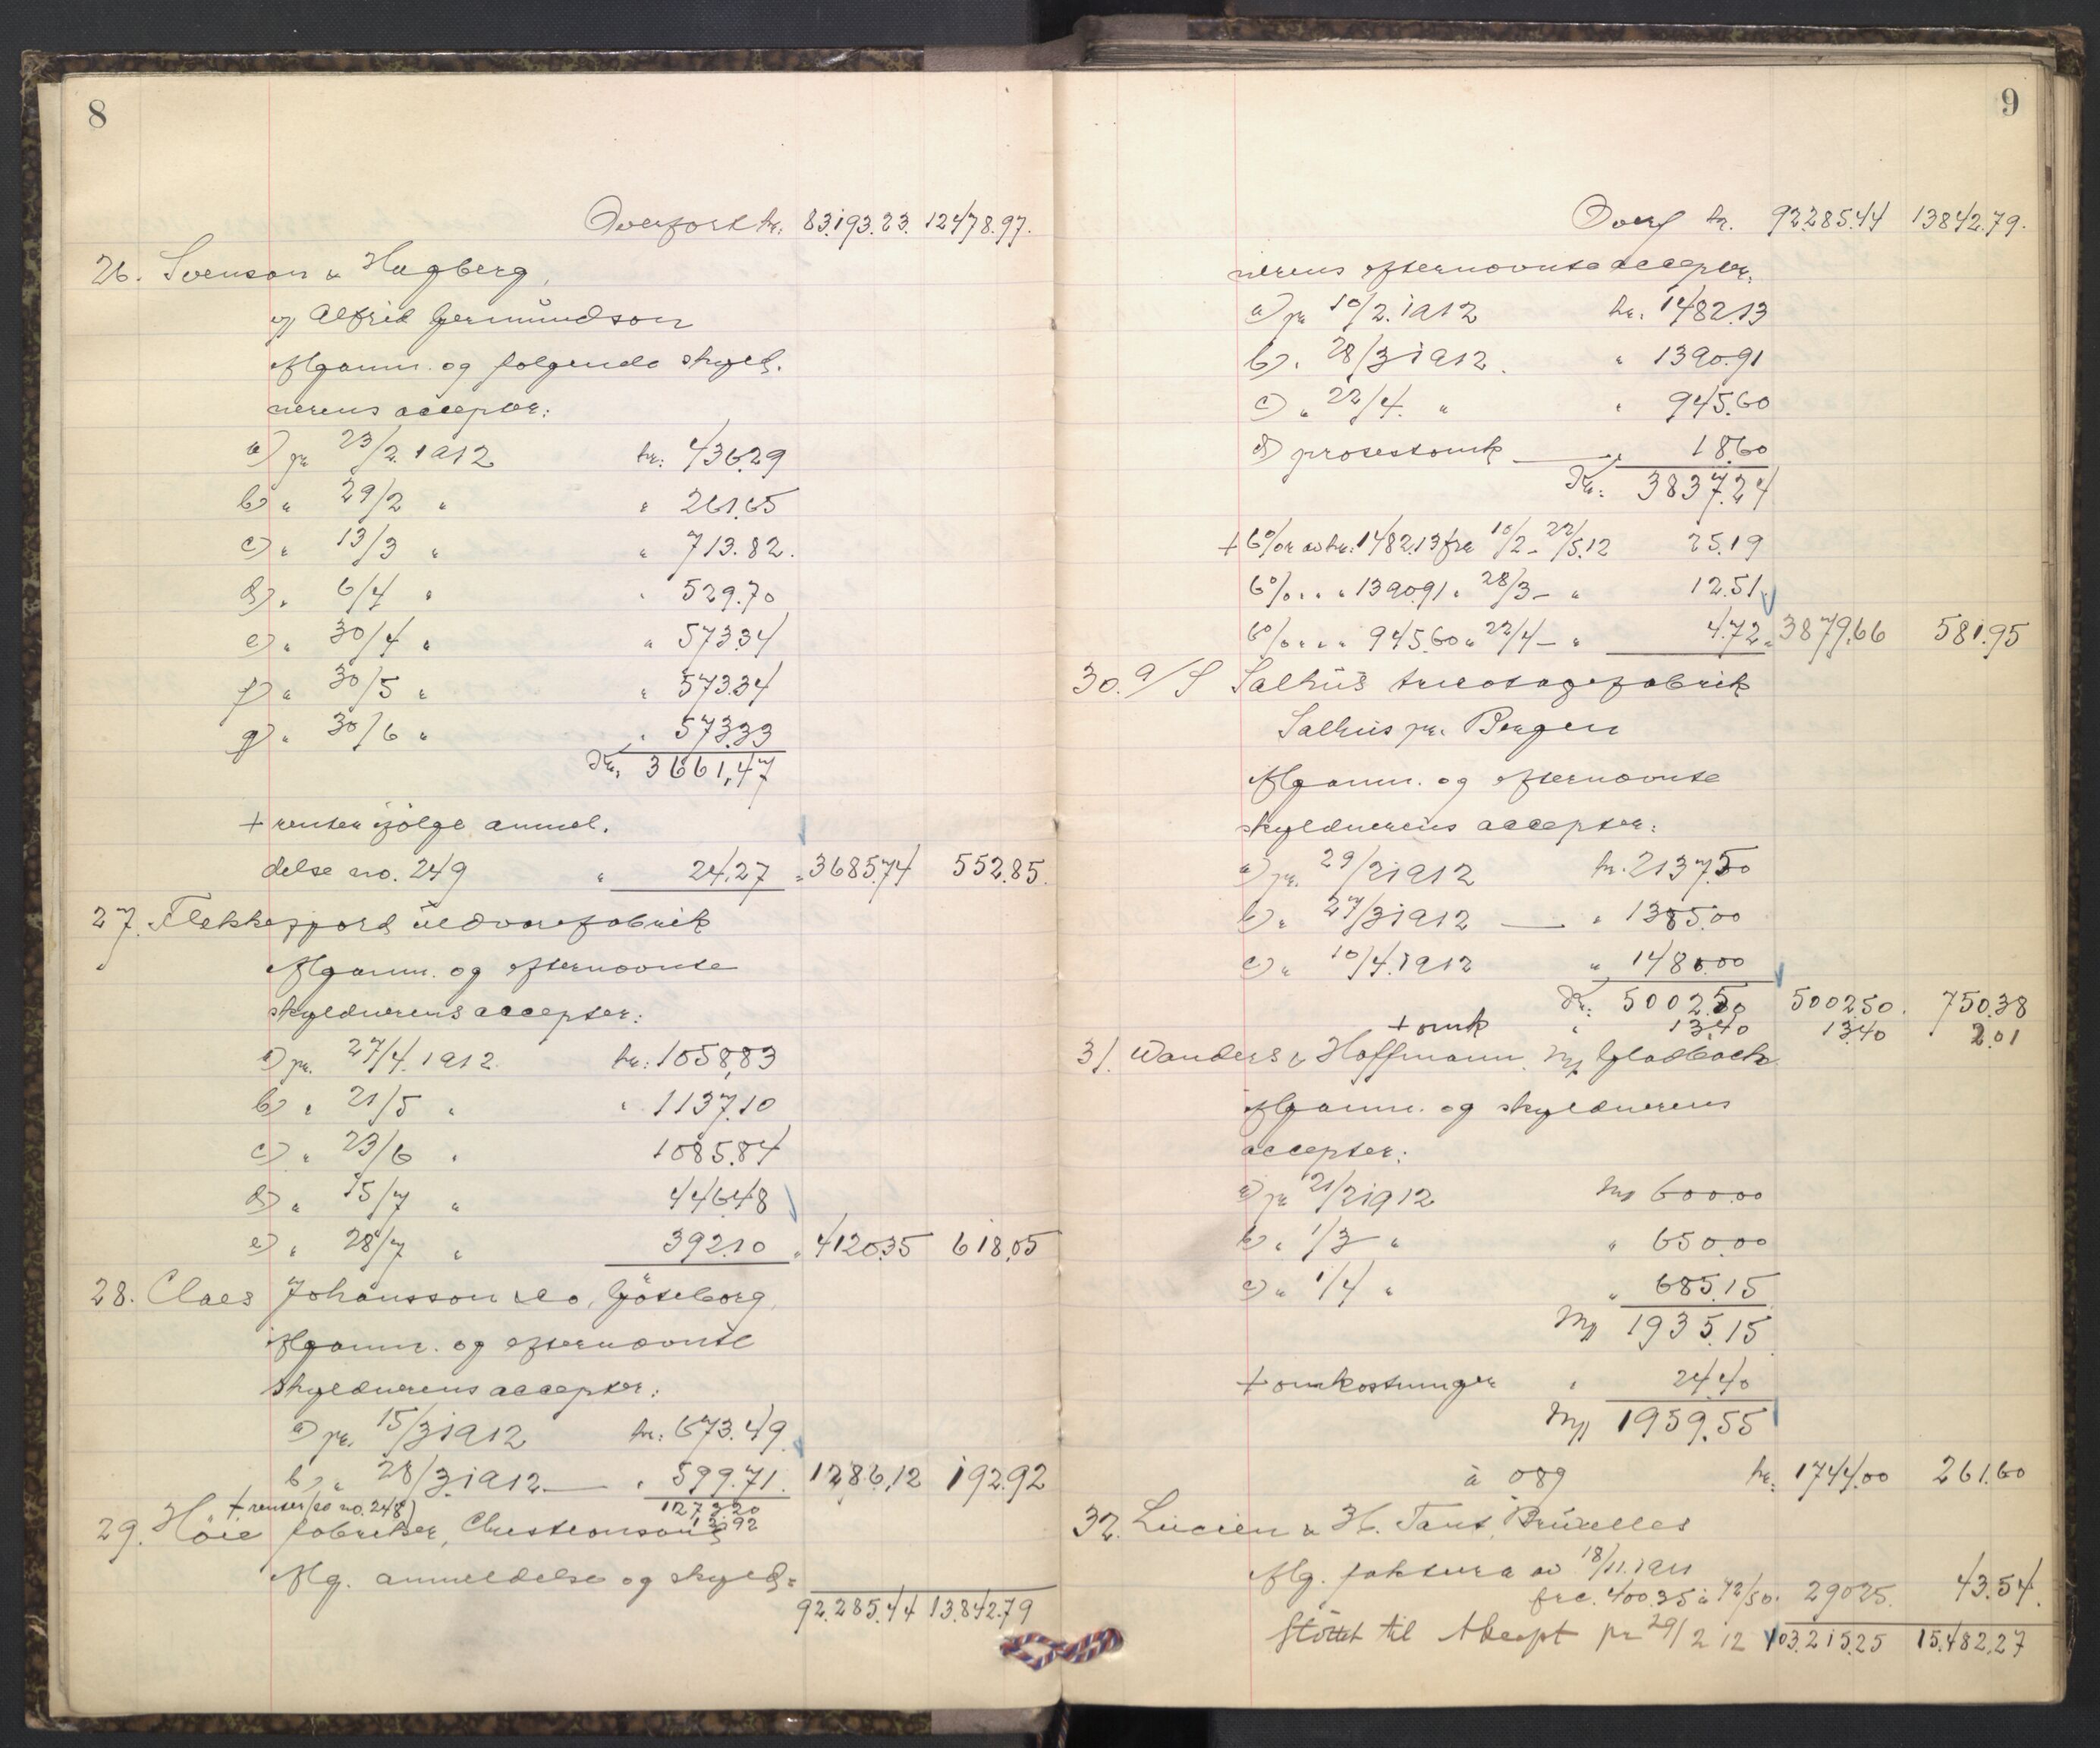 8
Overført kr. 83.193.23. 12478.97.
26. Svenson & Hagberg,
v/ Alfrid Germundson
Ifl. anm. og følgende skyld-
nerens accepter:
a) pr. 23/2. 1912 kr: 436.29
b) " 29/2 " " 261.65
c) " 13/3 " " 713.82.
d) " 6/4 " " 529.70
e) " 30/4 " " 573.34
f) " 30/5 " " 573.34
g) " 30/6 " " 573.33
Kr. 3661,47
+ renter ifølge anmel.
delse no. 249 " 24.27 " 3685.74 552.85.
27. Flekkefjord uldvarefabrik
Ifl. anm. og efternævnte
skyldnerens accepter:
a) pr. 27/4. 1912. kr: 1058,83
b) " 21/5 " " 1137.10
c) " 23/6 " 1085.84
d) " 15/7 " 446.48
e) " 28/7 " 392.10 " 4120.35 618,05
28. Claes Johansson & Co, Göteborg,
Ifl. anm. og efternævnte
skyldnerens accepter:
a) pr. 15/3 1912 kr: 673.49
b) " 28/3. 1912 — " 599.71. 1286,12 192.92
+ renter (se no. 248) 1273.20
29. Höie fabriker, Christianssand 12.92
Iflg. anmeldelse og skyld-
92.285.44 13.842.79
9
Overf kr. 92285.44 13842.79.
nerens efternævnte accepter.
a) pr 10/2. 1912 kr. 1482.13
b) " 28/3 1912. " 1390.91
c) " 22/4. " " 945.60
d) protestomk — " 18.60
Kr: 3837.24
+ 6% av kr: 1482.13 fra 10/2 - 22/5.12 25.19
6% " " " 1390.91 " 28/3 - " 12.51
6% " " " 945.60 " 22/4 - " 4.72 " 3879.66 581.95
30. A/S Salhus tricotagefabrik
Salhus pr. Bergen
Ifl. anm. og efternævnte
skyldnerens accepter:
a) pr. 29/2 1912 kr. 2137.50
b) " 27/3 1912 — " 1385.00
c) " 10/4. 1912 " 1480.00
Kr: 5002.50 5002.50. 750.38
+ omk " 13.40 13.40 2.01
31. Wanders & Hoffmann, M/Gladbach
Ifl. anm. og skyldnerens
accepter:
a) pr 21/2 1912 Mk 600.00
b) " 1/3 " " 650.00
c) " 1/4 " " 685.15
Mk 1935.15
+ omkostninger " 24.40
Mk 1959.55
à 089 kr: 1744.00 261.60
32. Lucien & H. Tant, Bruxelles
Iflg. faktura av 18/11. 1911
frc. 400.35 à 72/50. 290.25. 43.54.
Støttet til Akcept pr 29/2 12 103.215.25 15.482.27